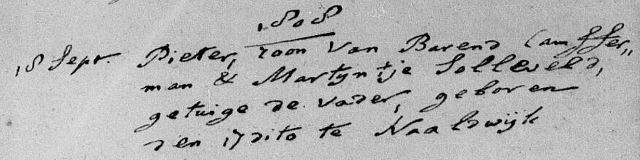 1808
18 Sept. Pieter, zoon van Barend Camffer,,
man & Martyntje Solleveld,
getuige de vader, geboren
den 17 dito te Naaldwijk